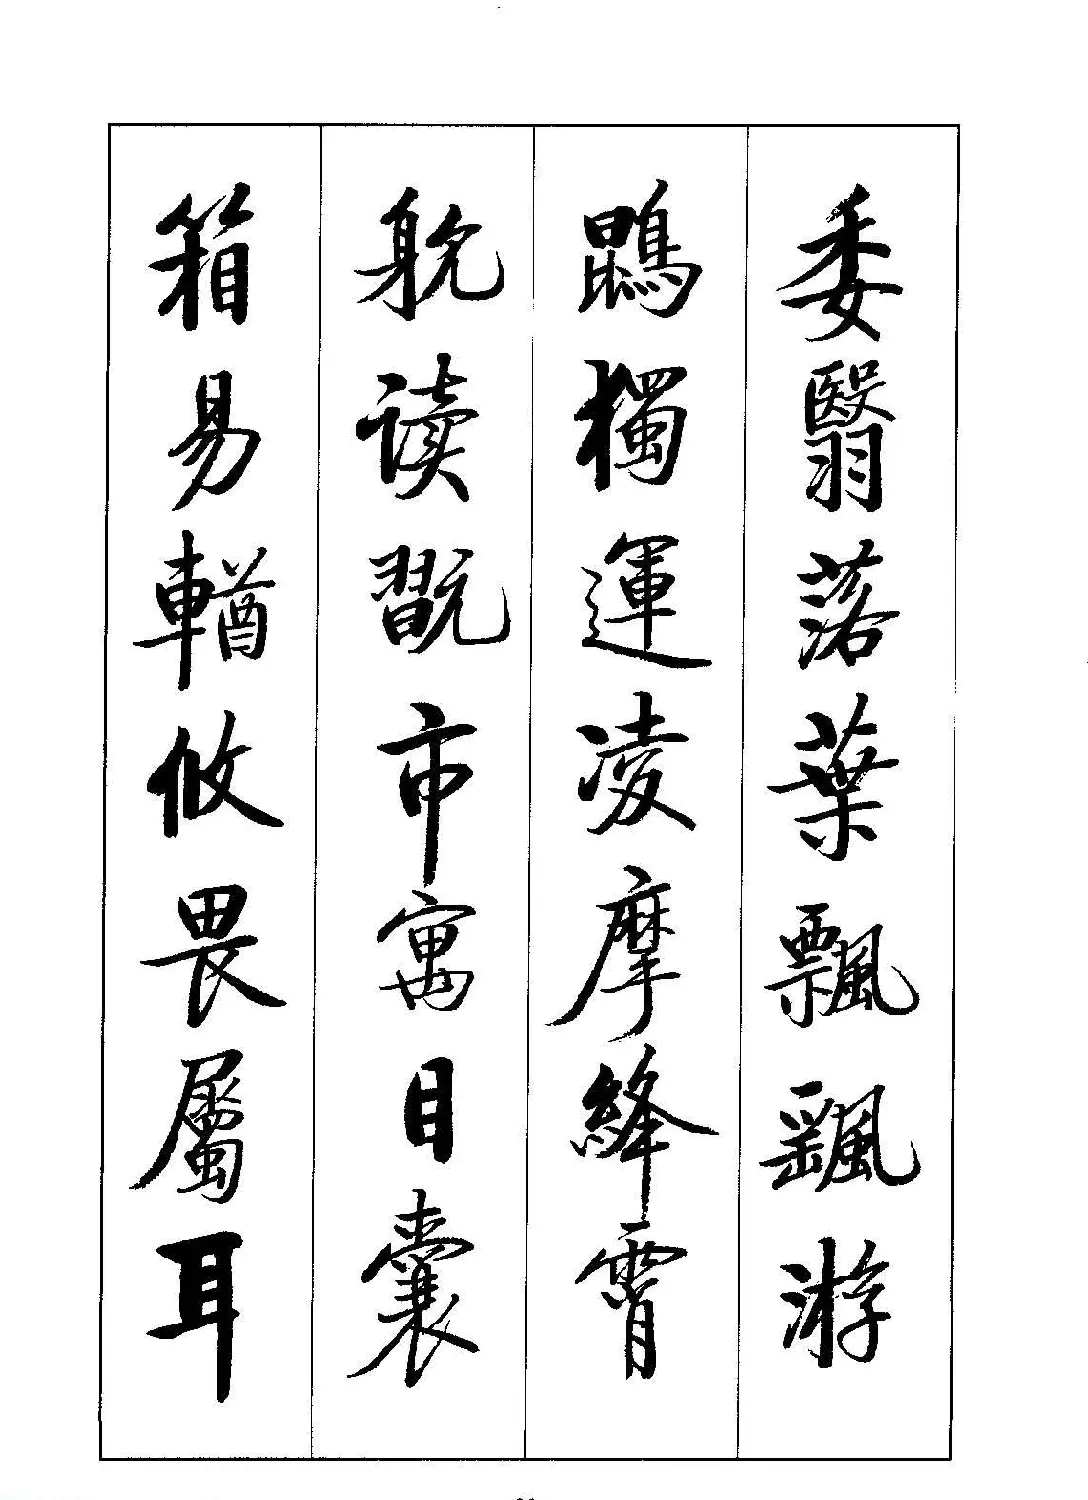 委翳落葉飄颻游
鵾獨運凌摩絳霄
躭读翫市寓目囊
箱易輶攸畏屬耳